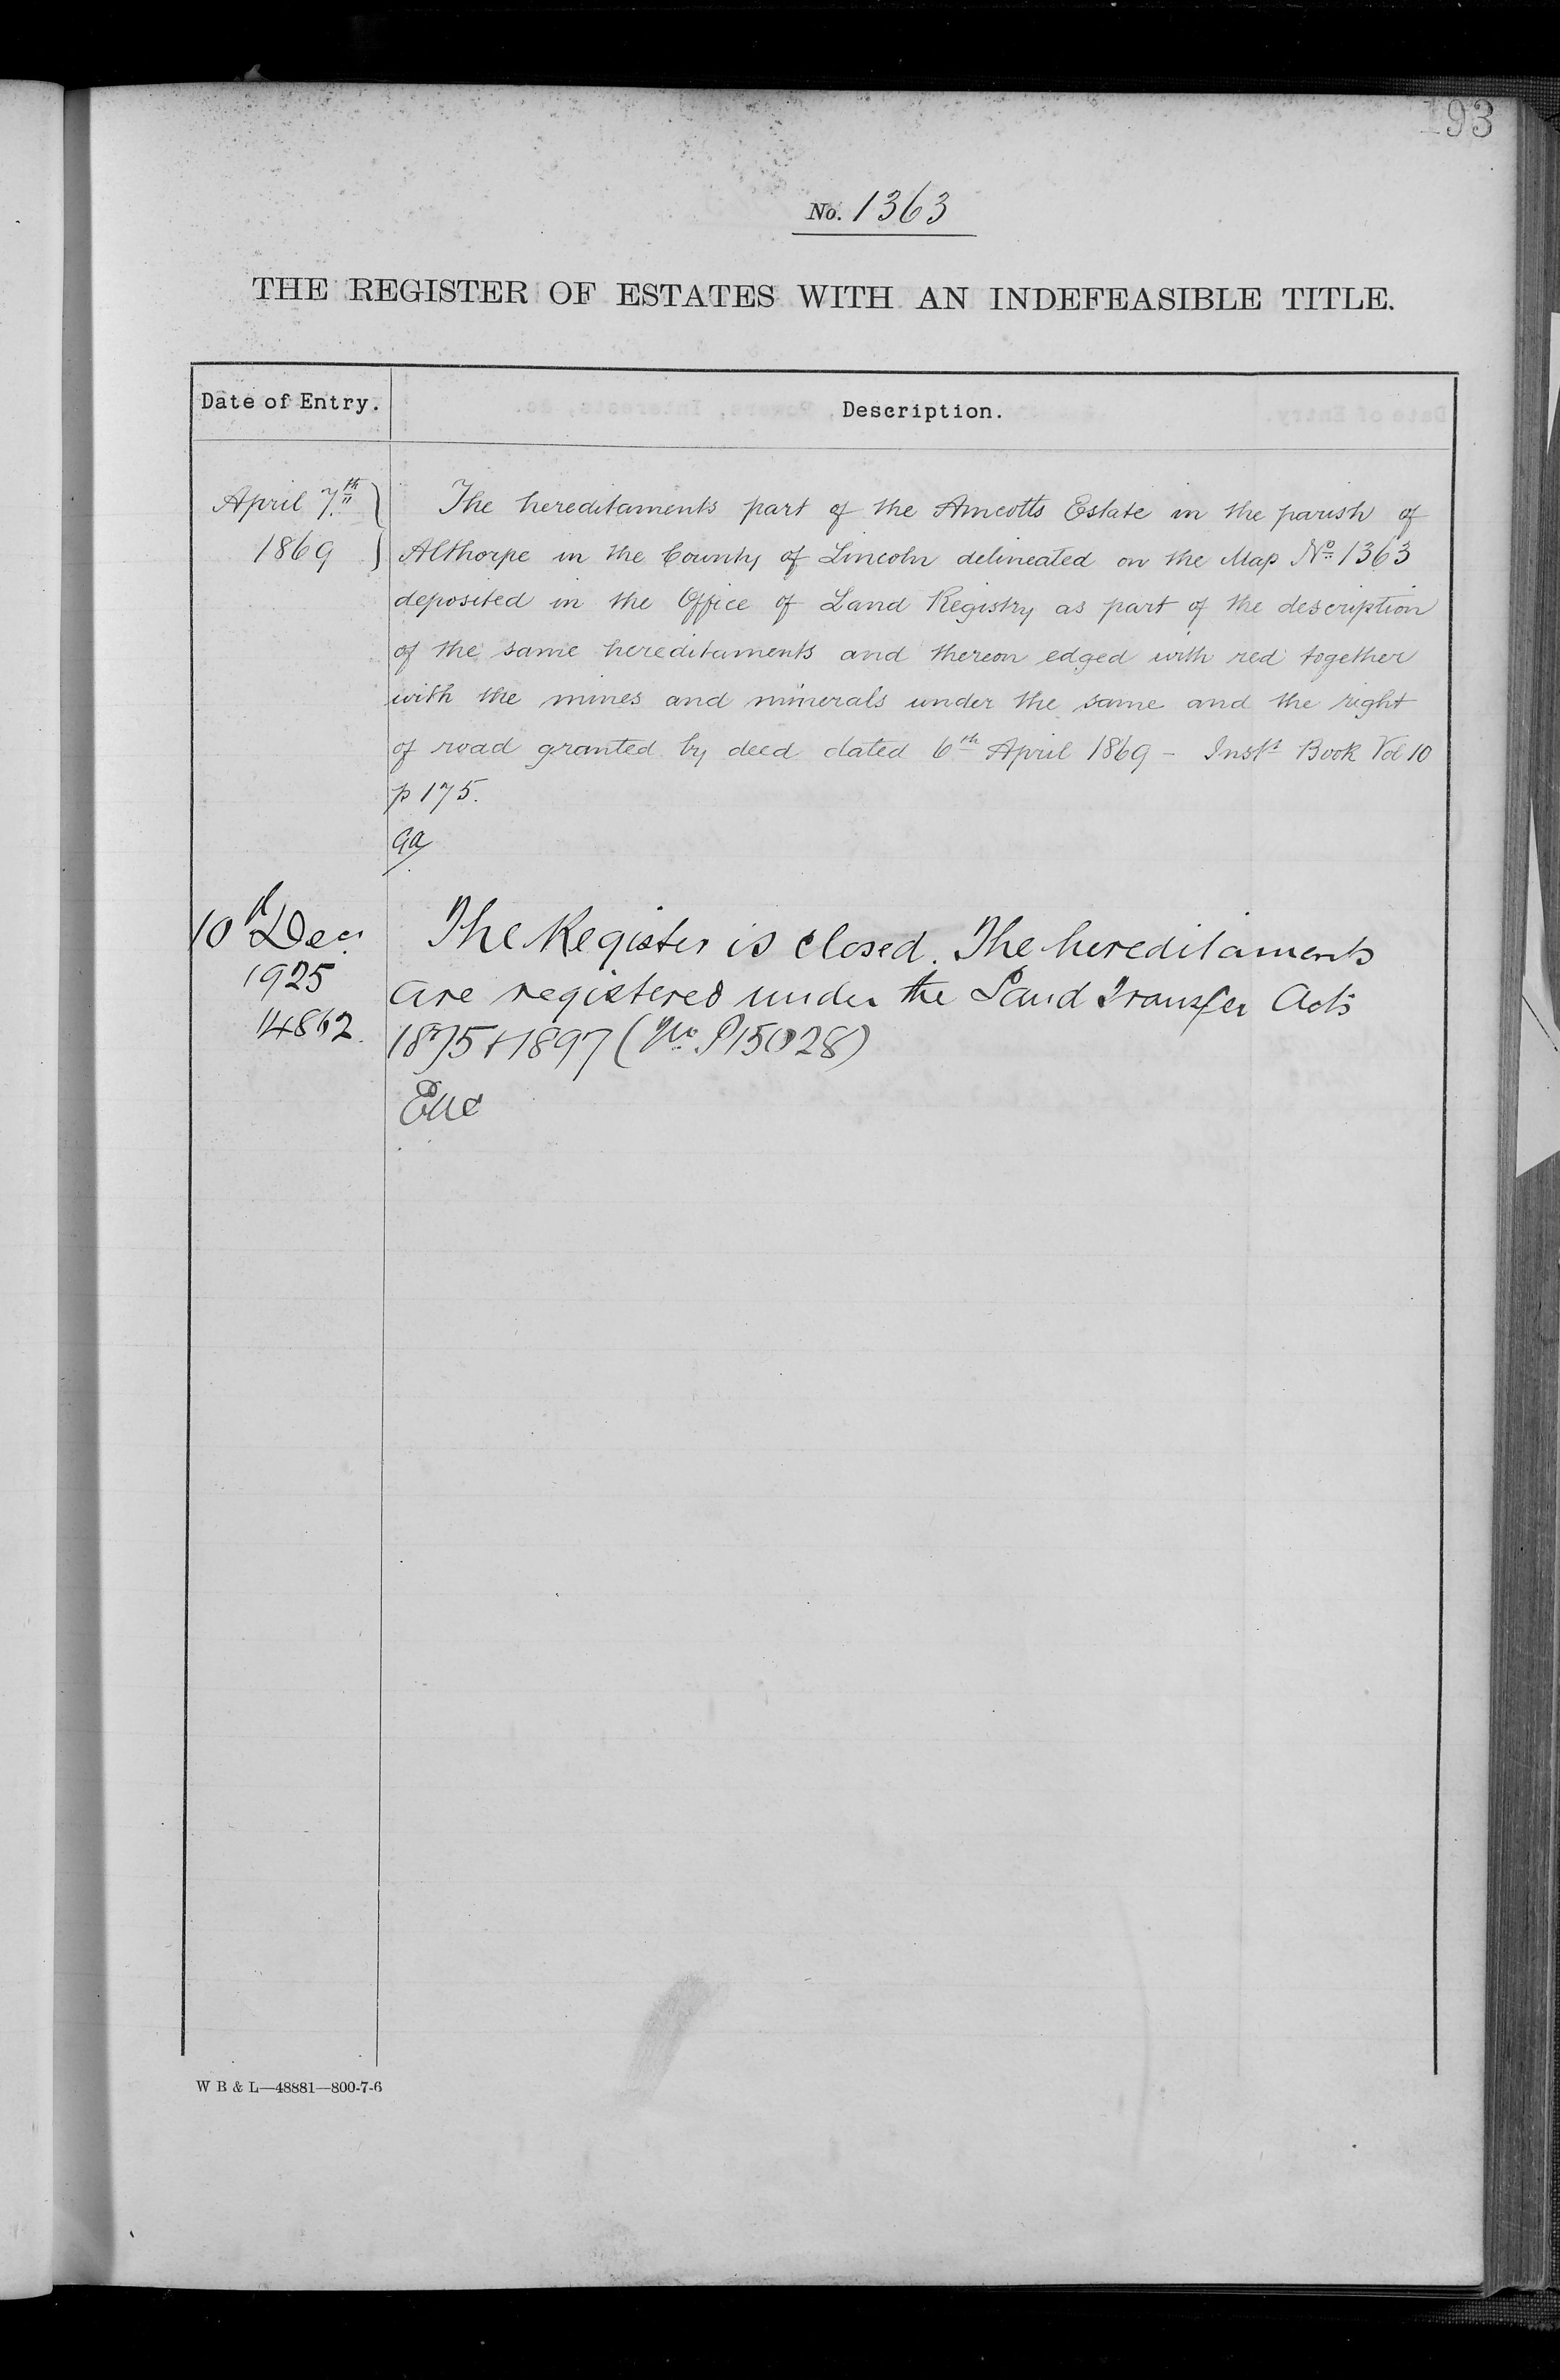 193
No. 1363
THE REGISTER OF ESTATES WITH AN INDEFEASIBLE TITLE.
Date of Entry.
Description.
April 7th
1869
The hereditaments part of the Amcotts Estate in the parish of
Althorpe in the County of Lincoln delineated on the Map No. 1363
deposited in the Office of Land Registry as part of the description
of the same hereditaments and thereon edged with red together
with the mines and minerals under the same and the right
of road granted by deed dated 6th April 1869 – Inst Book Vol 10
p 175.
10th Dec.
1925
14862.
The Register is closed. The hereditaments
are registered under the Land Transfer Acts
1875 & 1897 (No. P15028)
W B & L—48881—800-7-6